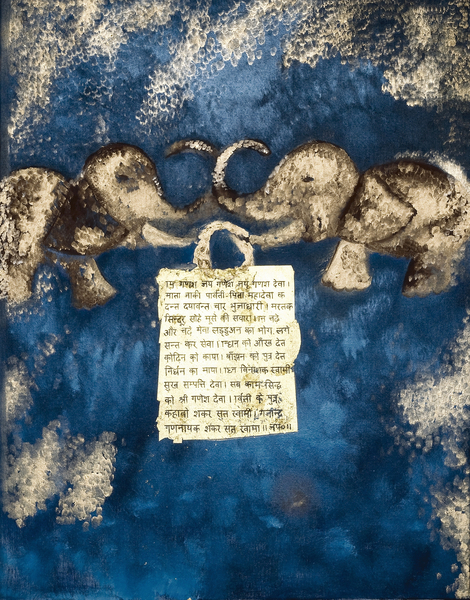 जय गणेश जय गणेश जय गणेश देवा।
माता जाकी पार्वती पिता महादेवा क
दन्त दयावन्त चार भुजाधारी। मस्तक
सिन्दूर सोहे मूसे की सवारी।
और चढ़े मेवा लड्डुअन का भोग लगे
सन्त करे सेवा। को आँख देत
कोढ़िन को काया। बाँझन को पुत्र देत
निर्धन का माया। विनाशक स्वामी
सुख सम्पत्ति देवा। सब काम सिद्ध
को श्री गणेश देवा। पार्वती के पुत्र
कहावो शंकर सुत स्वामी।
गणनायक शंकर सुत स्वामी॥